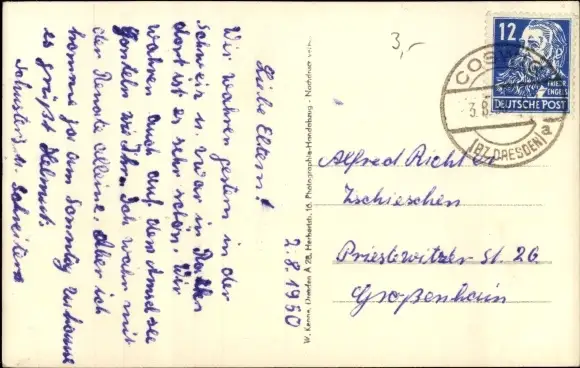 Liebe Eltern!
Wir wahren gestern in der
Schweiz u. war in Rathen
dort ist er sehr schön. Wir
wahren auch auf den Amselsee
Gondeln wie Ihr. Ich war mit
der Renate alleine. Aber ich
komme ja am Sonntag zu hause
es grüßt Helmut.
2.8.1950
W. Kenne, Dresden A 28, Herbertstr. 18, Photographie-Handabzug - Nachdruck verb.
3,-
12
FRIEDR.
ENGELS
DEUTSCHE POST
COSWIG
3.8.
(BZ. DRESDEN) a
Alfred Richter
Zschieschen
Priestewitzer-St. 26
Großenhain